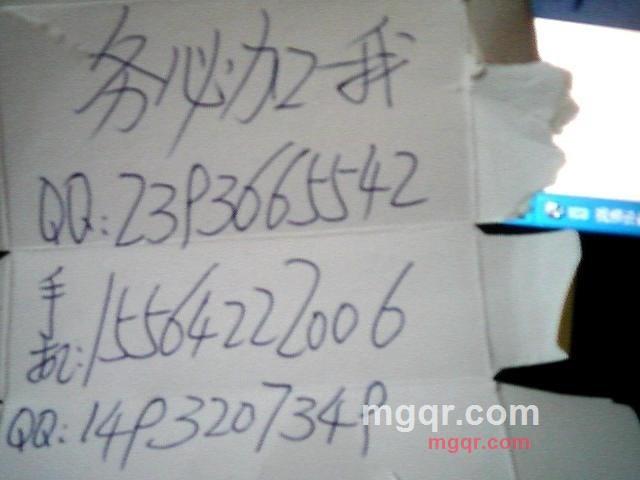 务必加我
QQ:2393665542
手机:15564222006
QQ:1493207349
mgqr.com
mgqr.com